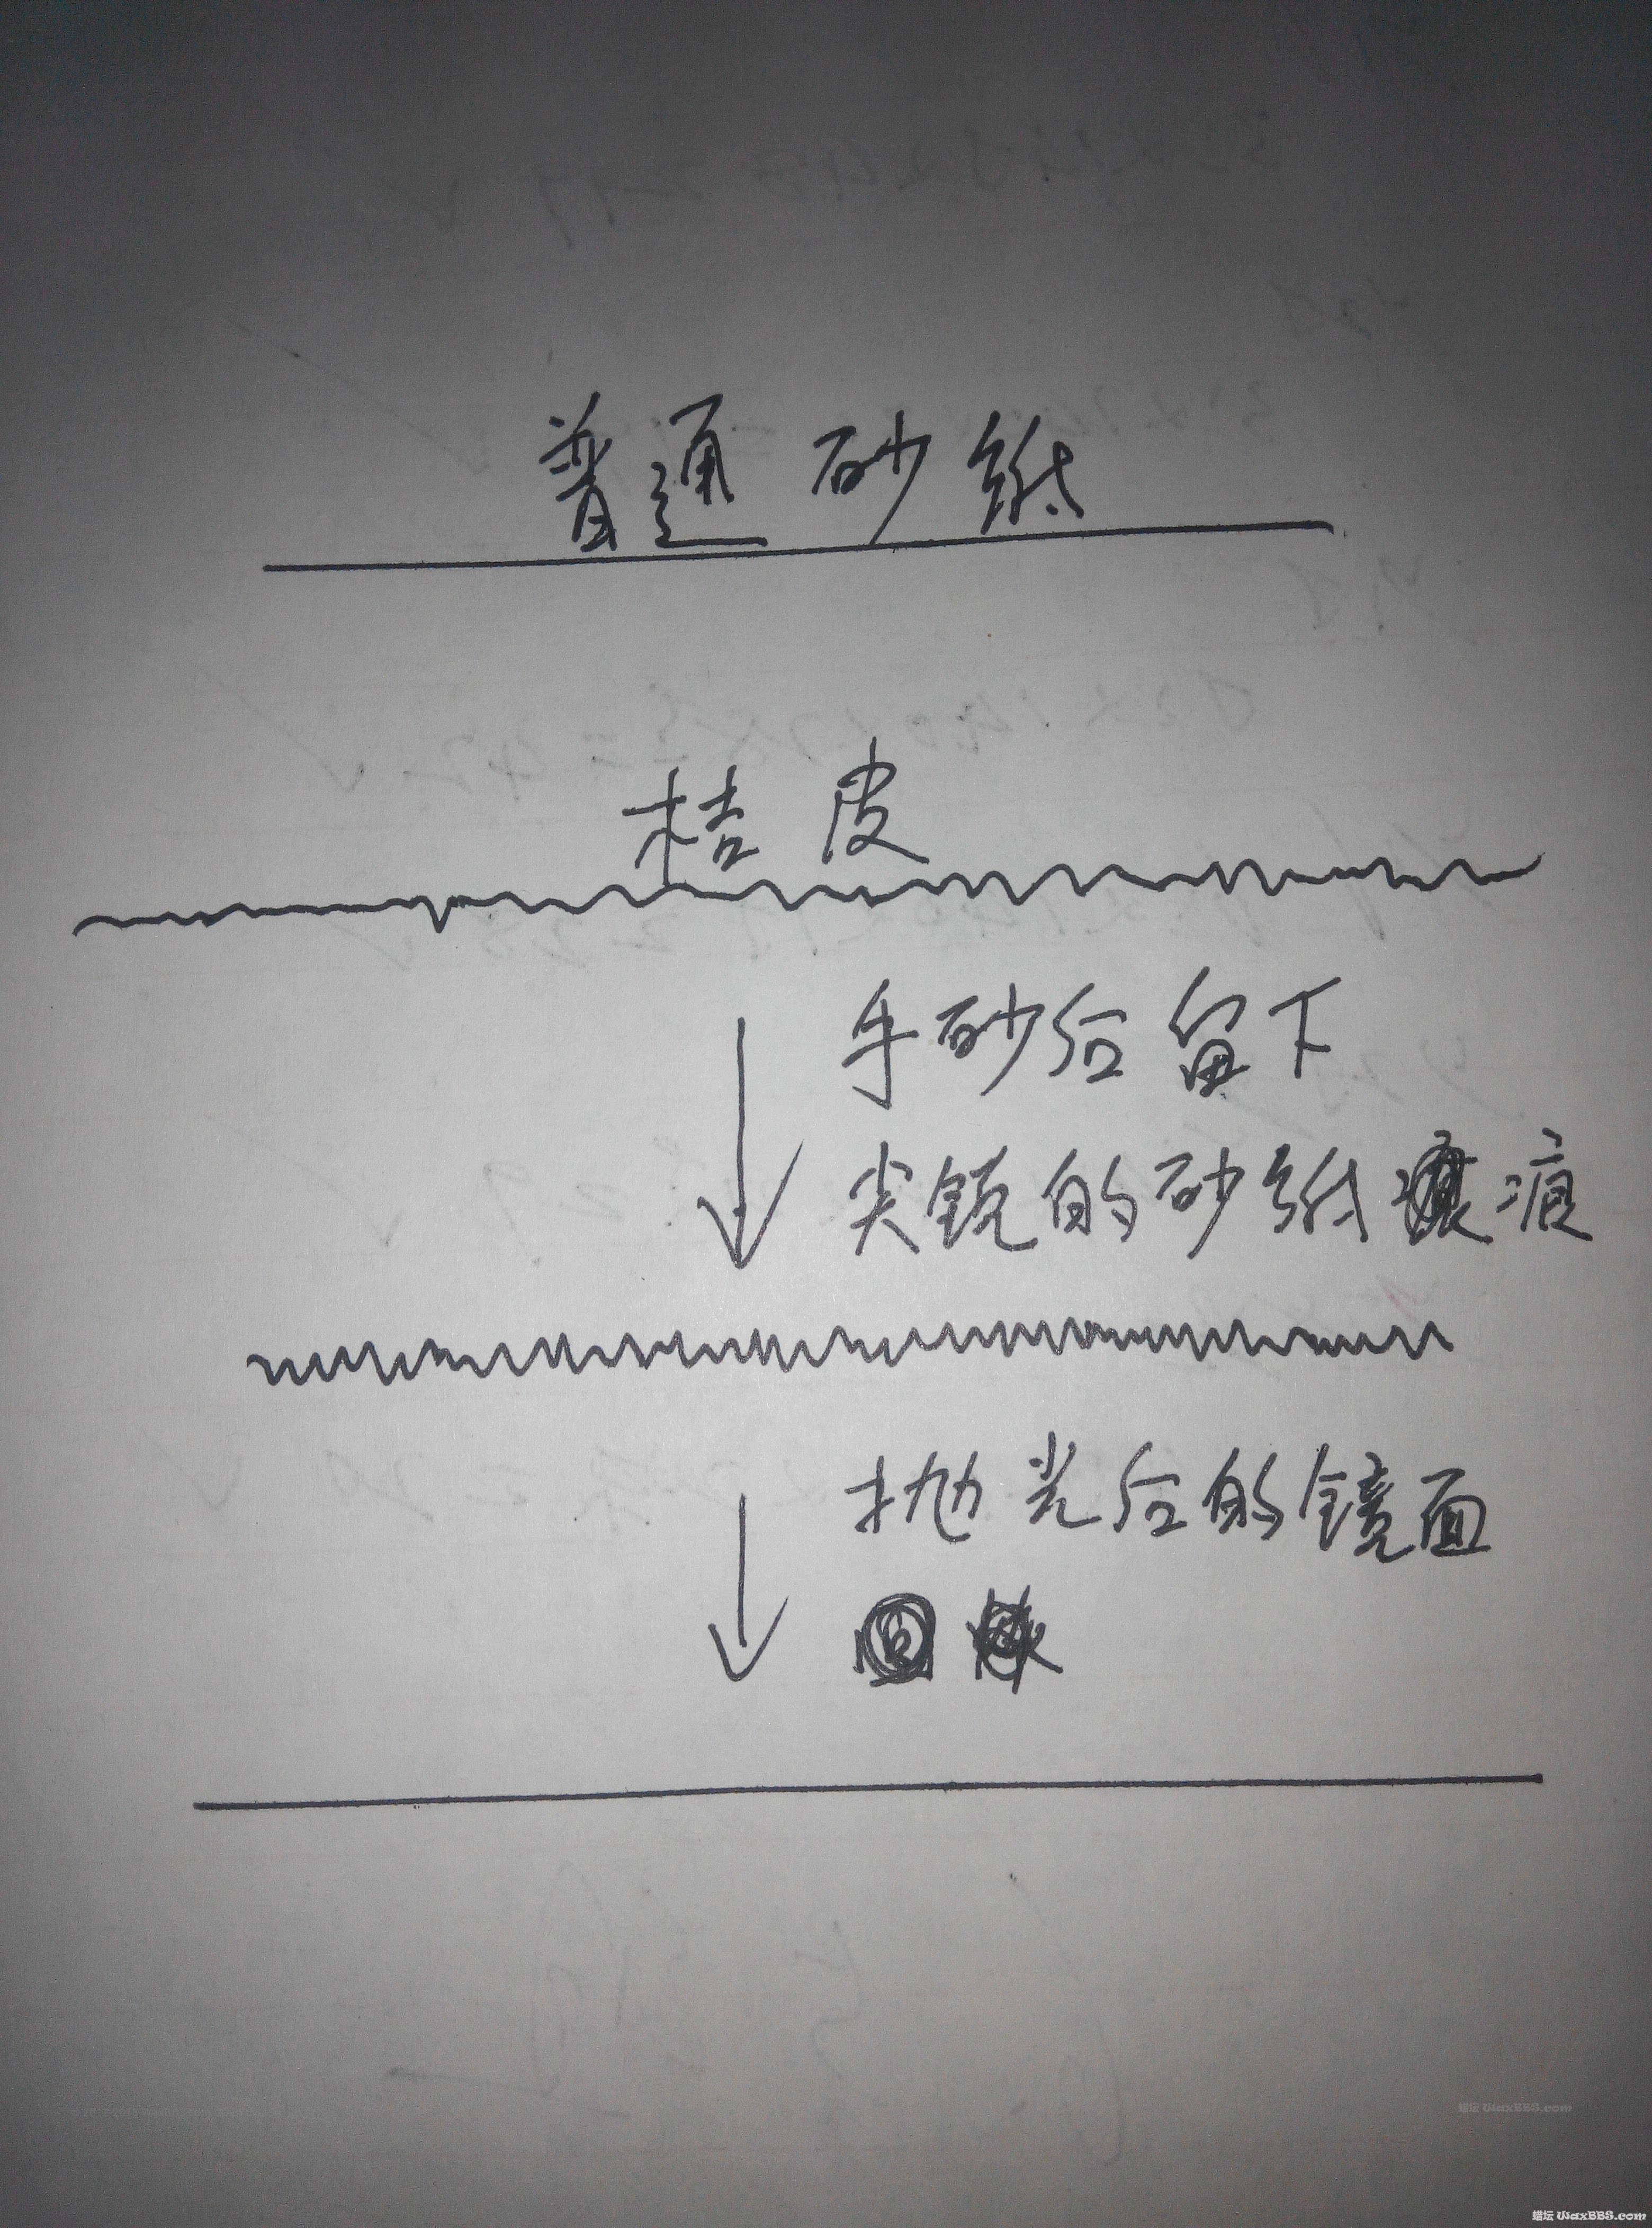 普通砂纸
桔皮
手砂后留下
尖锐的砂纸痕
抛光后的镜面
蜡坛 WaxBBS.com
蜡坛 WaxBBS.com